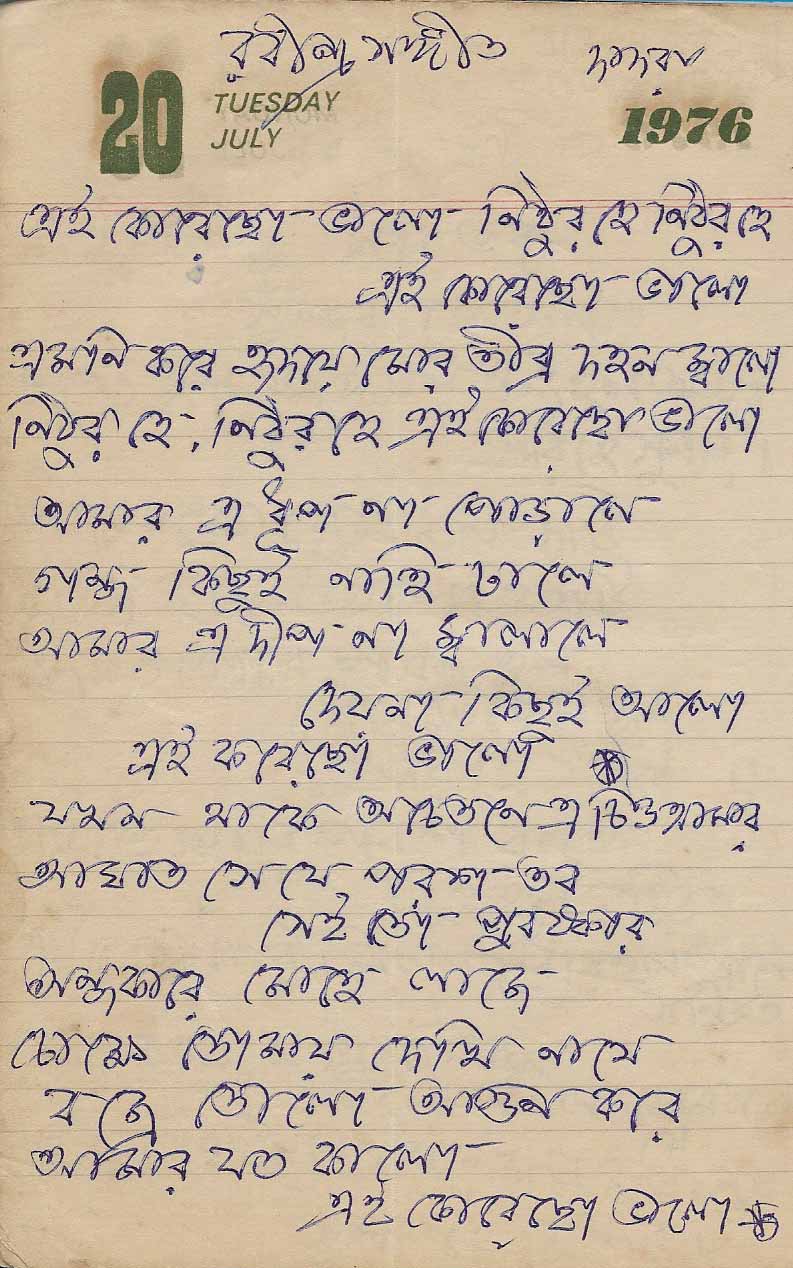 রবীন্দ্র সঙ্গীত দাদরা
20 TUESDAY
JULY 1976
এই কোরেছো ভালো নিঠুর হে নিঠুর হে
এই কোরেছো ভালো
এমনি করে হৃদয়ে মোর তীব্র দহন জ্বালো
নিঠুর হে, নিঠুর হে এই কোরেছো ভালো
আমার এ ধূপ না পোড়ালে
গন্ধ কিছুই নাহি ঢালে
আমার এ দীপ না জ্বালালে
দেয়না কিছুই আলো
এই করেছো ভালো
যখন থাকে অচেতনে এ চিত্ত আমার
আঘাত সে যে পরশ তব
সেই তো পুরষ্কার
অন্ধকারে মোহে লাজে
চোখে তোমায় দেখি না যে
বজ্রে তোলো আগুন করে
আমার যত কালো
এই কোরেছো ভালো